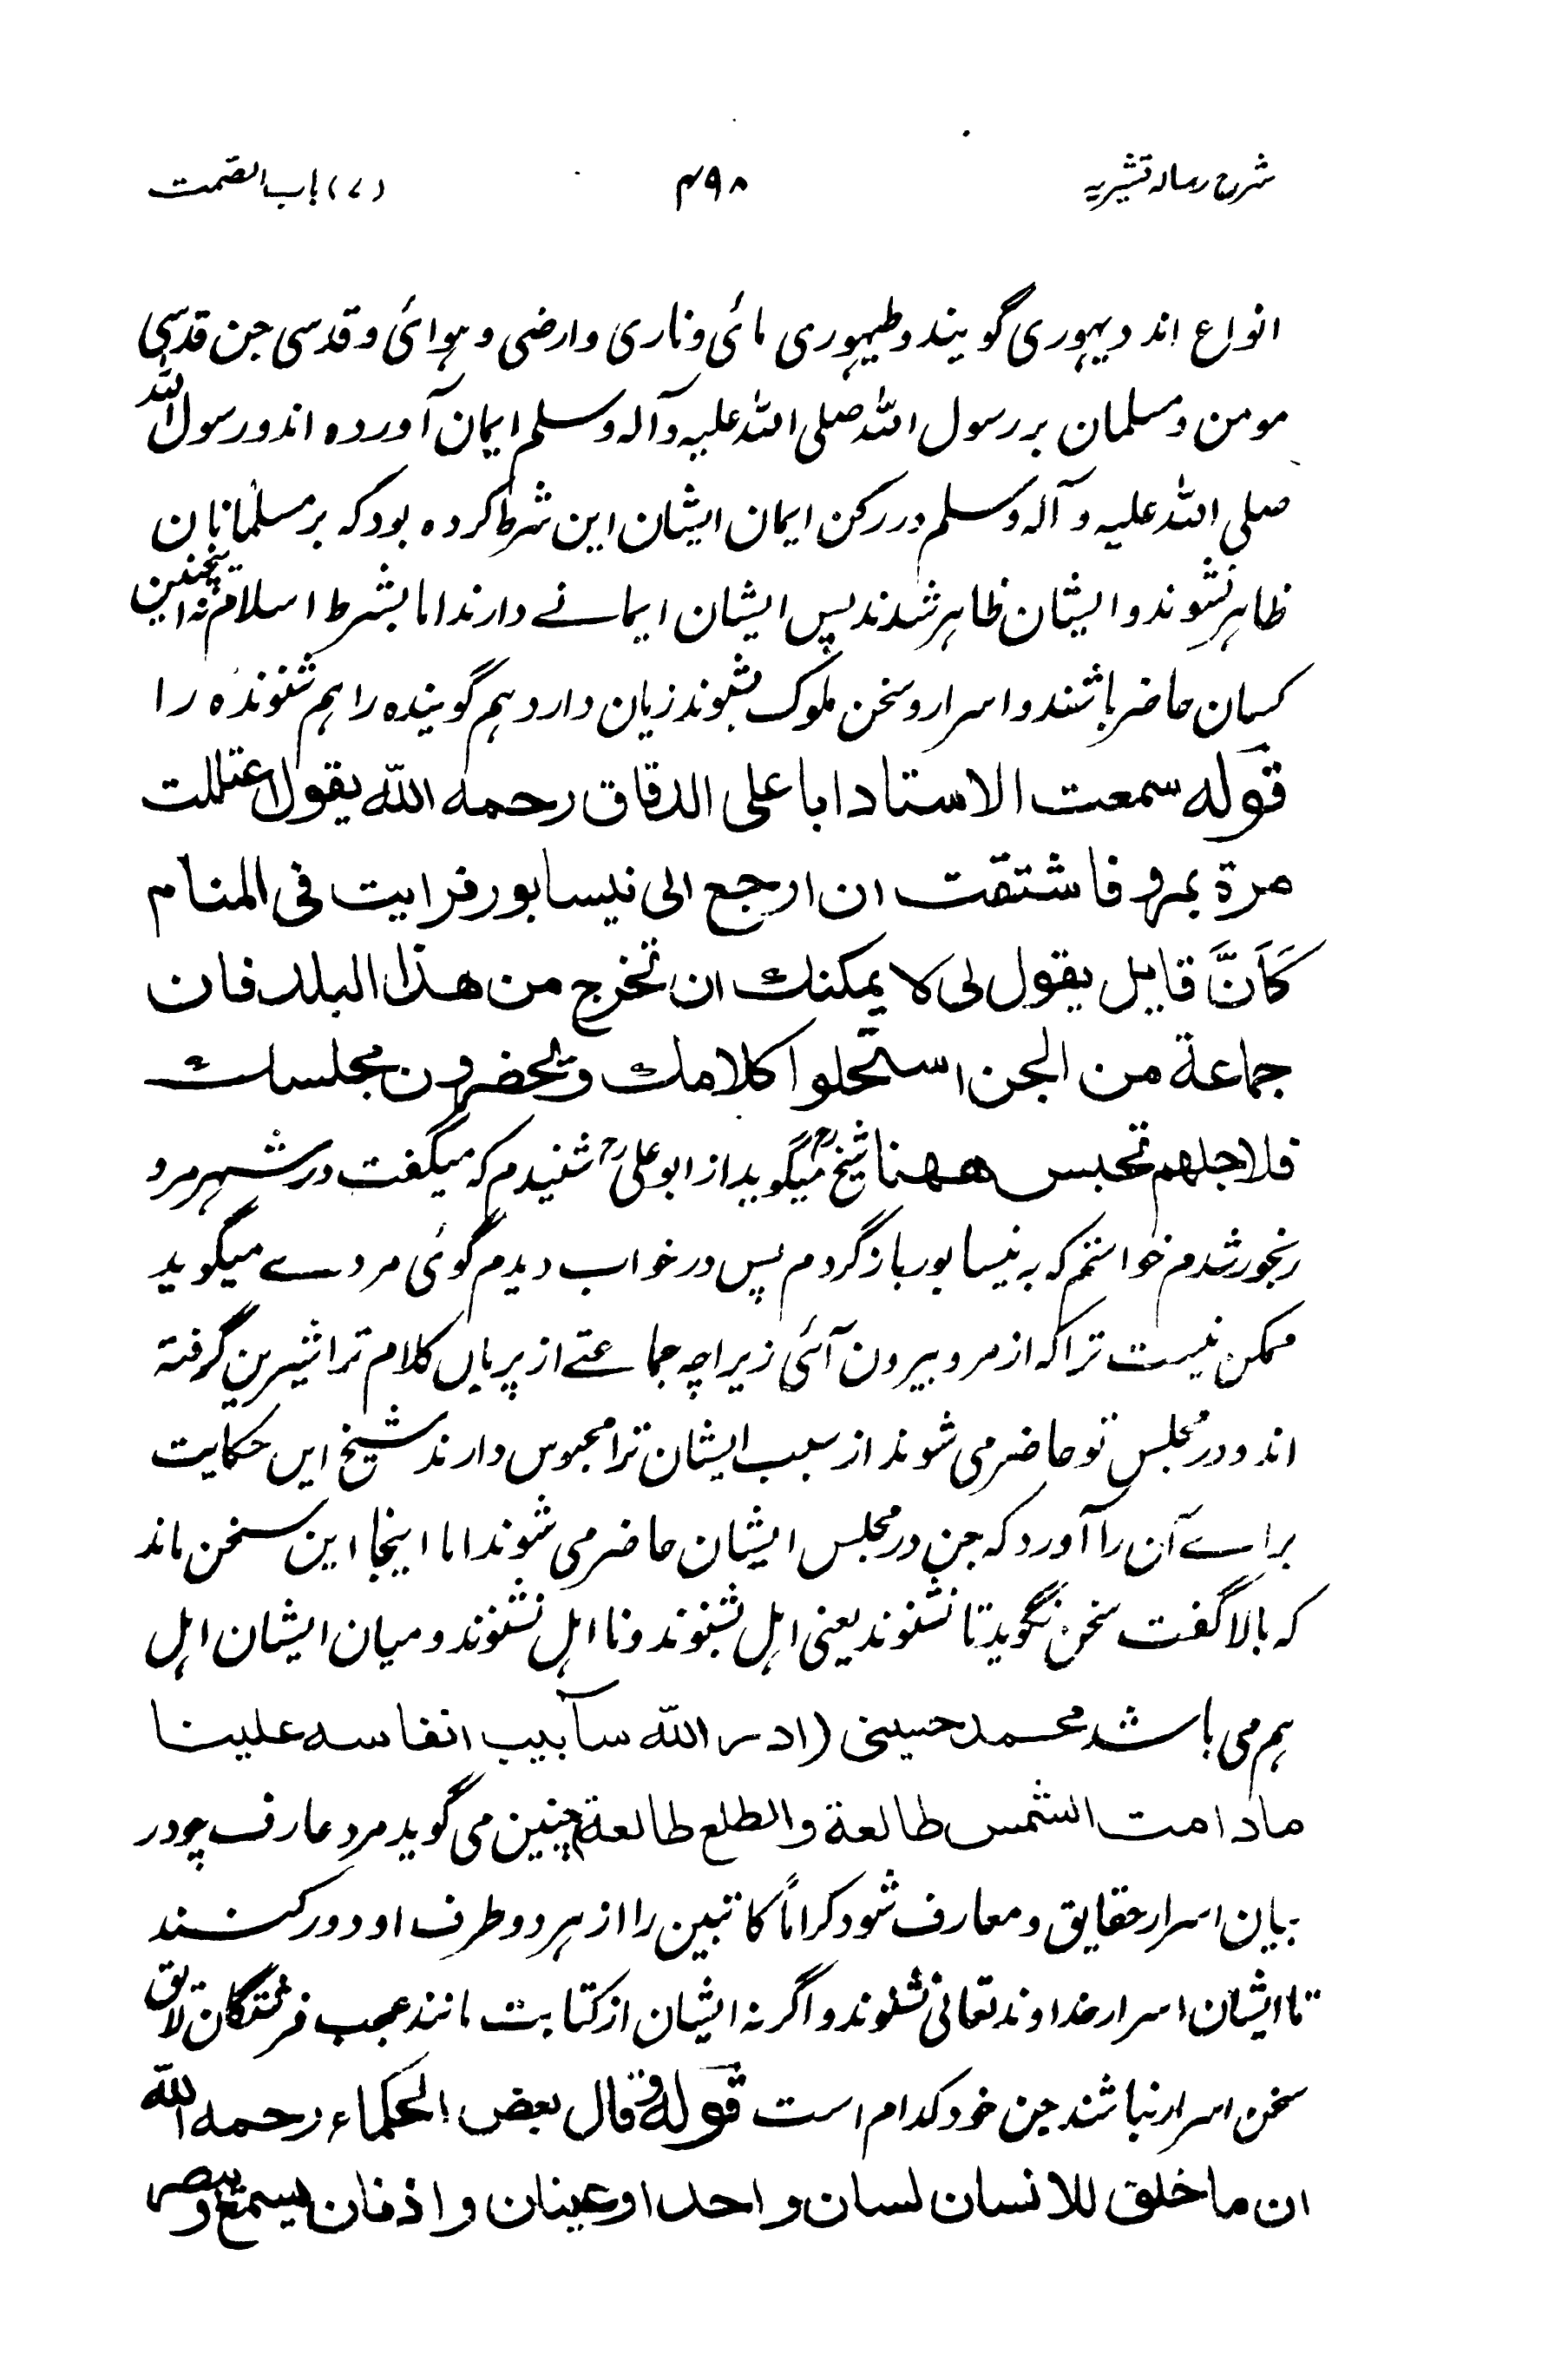 شرح رساله قشیریه ۴۹۸ (۷) باب الصّمت
انواع اند دیهوری گویند و طیهوری مائی و ناری و ارضی و هوائی و قدسی جن قدسی
مومن و مسلمان بر رسول الله صلی الله علیه و آله و سلم ایمان آورده اند و رسول الله
صلی الله علیه و آله و سلم در رکن ایمان ایشان این شرط کرده بود که بر مسلمانان
ظاهر نشوند و ایشان ظاهر شدند پس ایشان ایمانے دارند اما بشرط اسلام نه اینچنین
کسان حاضر باشند و اسرار و سخن ملوک بشنوند زیان دارد هم گوینده را هم شنونده را
قوله سمعت الاستاد ابا علی الدقاق رحمه الله یقول اعتللت
مرة بمرو فاشتقت ان ارجع الی نیسابور فرایت فی المنام
کَاَنَّ قایل یقول لی لا یمکنك ان تخرج من هذا البلد فان
جماعة من الجن استحلوا کلامك و یحضرون مجلسك
فلاجلهم تحبس ههنا شیخ رح میگوید از ابو علی رح شنیدم که میگفت در شهر مرو
رنجور شدم خواستم که به نیسابور باز گردم پس در خواب دیدم گوئی مردے میگوید
ممکن نیست ترا که از مرو بیرون آئی زیراچه جماعتے از پریاں کلام ترا شیرین گرفته
اند و در مجلس تو حاضر می شوند از سبب ایشان ترا محبوس دارند شیخ ایں حکایت
براے آن را آورد که جن در مجلس ایشان حاضر می شوند اما اینجا این سخن ماند
که بالا گفت سخن نگوید تا نشنوند یعنی اهل بشنوند و نا اهل نشنوند و میان ایشان اهل
هم می باشد محمد حسینی (ادر الله سآبیب انفاسه علینا
مادامت الشمس طالعة والطلع طالعة) چنین می گوید مرد عارف چو در
بیان اسرار حقایق و معارف شود کراماً کاتبین را از هر دو طرف او دور کنند
تا ایشان اسرار خداوند تعالی نشنوند و اگر نه ایشان از کتابت مانند عجب فرشتگان لایق
سخن اسرار نباشند جن خود کدام است قوله وقال بعض الحکماء رحمه الله
ان ما خلق للانسان لسان واحد او عینان و اذنان لیسمع و یبصر